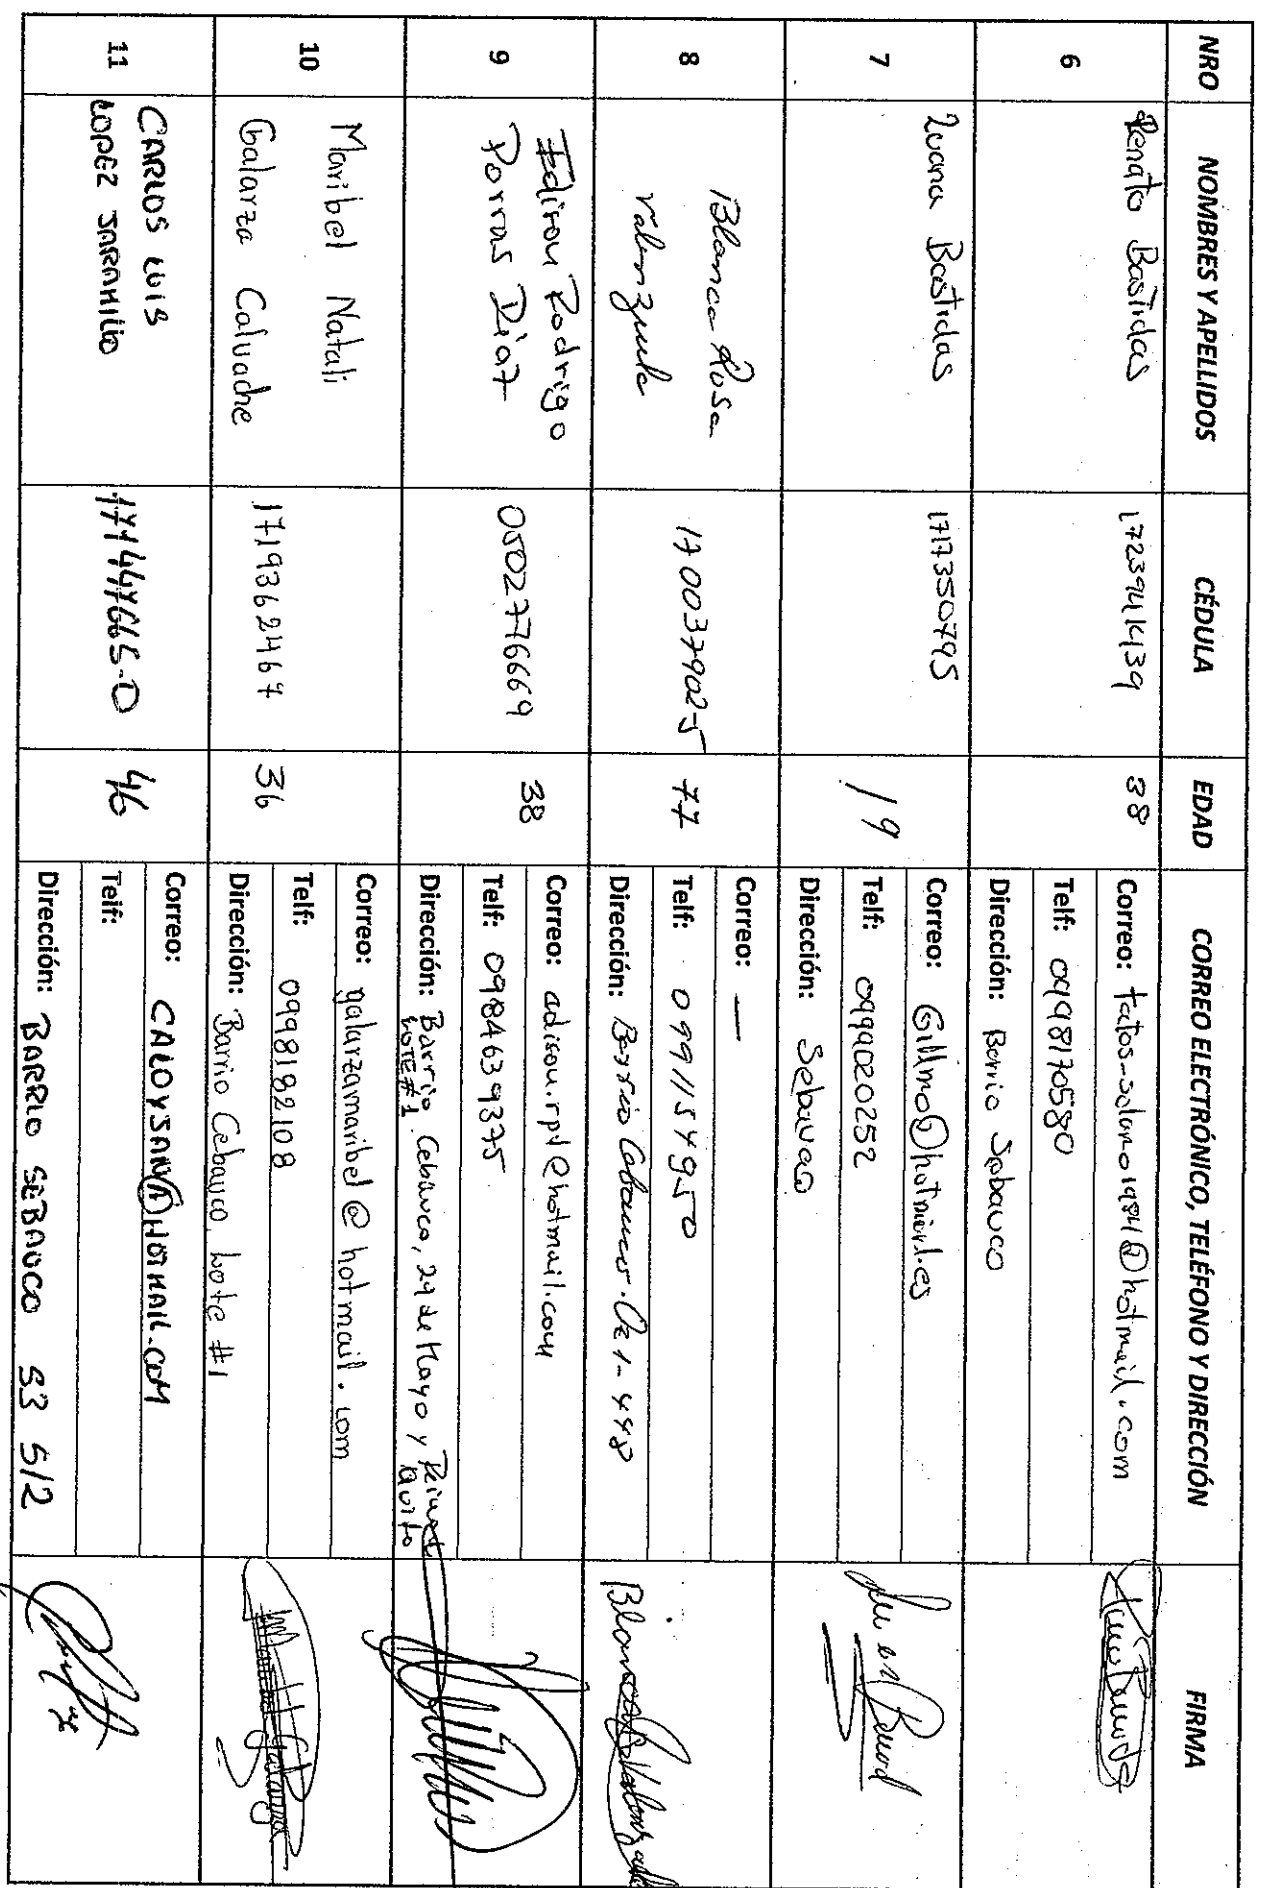 NRO NOMBRES Y APELLIDOS CÉDULA EDAD CORREO ELECTRÓNICO, TELÉFONO Y DIRECCIÓN FIRMA
6 Renato Bastidas 38
Correo: @hotmail.com
Telf: 0998170580
Dirección: Barrio Sebauco
7 Bastidas 1717350795 19
Correo: Gillmo@hotmail.es
Telf: 0999020252
Dirección: Sebauco
8 Blanca Rosa
Valenzuela
170037902-5 77
Correo: —
Telf: 0991154950
Dirección: Barrio 448
9 Edison Rodrigo
Porras Diaz
0502776669 38
Correo: edisou.rpd@hotmail.com
Telf: 0984639375
Dirección: Barrio Cebauco, 24 de Mayo y
LOTE #1 Quito
10 Maribel Natali
Galarza Calvache
1719362467 36
Correo: galarzamaribel@hotmail.com
Telf: 0998182108
Dirección: Barrio Cebauco Lote #1
11 CARLOS LUIS
LOPEZ JARAMILLO
171447665-0 46
Correo: CALOYSAN@HOTMAIL.COM
Telf:
Dirección: BARRIO SEBAUCO S3 512